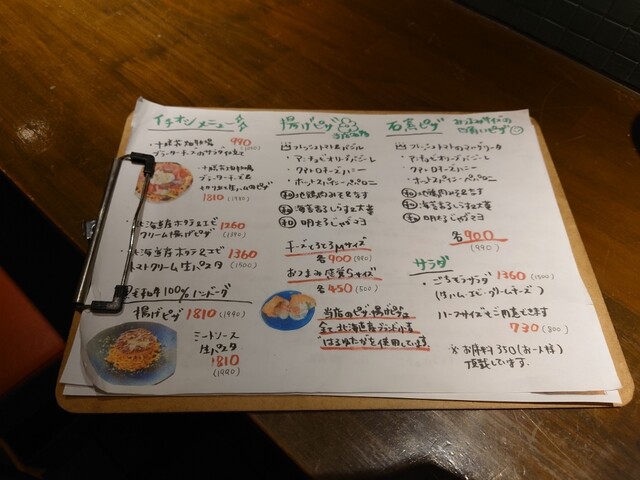 イチオシメニュー
・十勝花畑牧場 990
ブラータチーズのサラダ仕立て
・十勝花畑牧場
ブラータチーズと
切りたて生ハムのピザ
1810
北海道産ホタテ&エビ 1260
クリーム揚げピザ
北海道産ホタテ&エビ 1360
トマトクリーム生パスタ (1500)
黒毛和牛100%ハンバーグ
揚げピザ 1810 (1990)
ミートソース
生パスタ
1810
(1990)
揚げピザ
フレッシュトマト&バジル
・マッシュルームと
・クワトロチーズハニー
・ホットスパイシーペパロニ
和 地鶏肉みそねぎ
和 海苔香るしらすと大葉
和 明太じゃがマヨ
チーズとろとろMサイズ
各900 (990)
おつまみ感覚Sサイズ
各450 (500)
当店のピザ、揚げピザは
全て北海道産ブランド小麦
"はるゆたかを使用しています。
石窯ピザ
おつまみサイズの
四角いピザ
フレッシュトマトのマルゲリータ
・クワトロチーズハニー
・ホットスパイシーペパロニ
和 地鶏肉みそねぎ
和 海苔香るしらすと大葉
和 明太じゃがマヨ
各900
(990)
サラダ
・ごちそうサラダ 1360 (1500)
(生ハム・エビ・クリームチーズ)
ハーフサイズもご用意できます
730 (800)
※お席料350(お一人様)
頂戴しています。